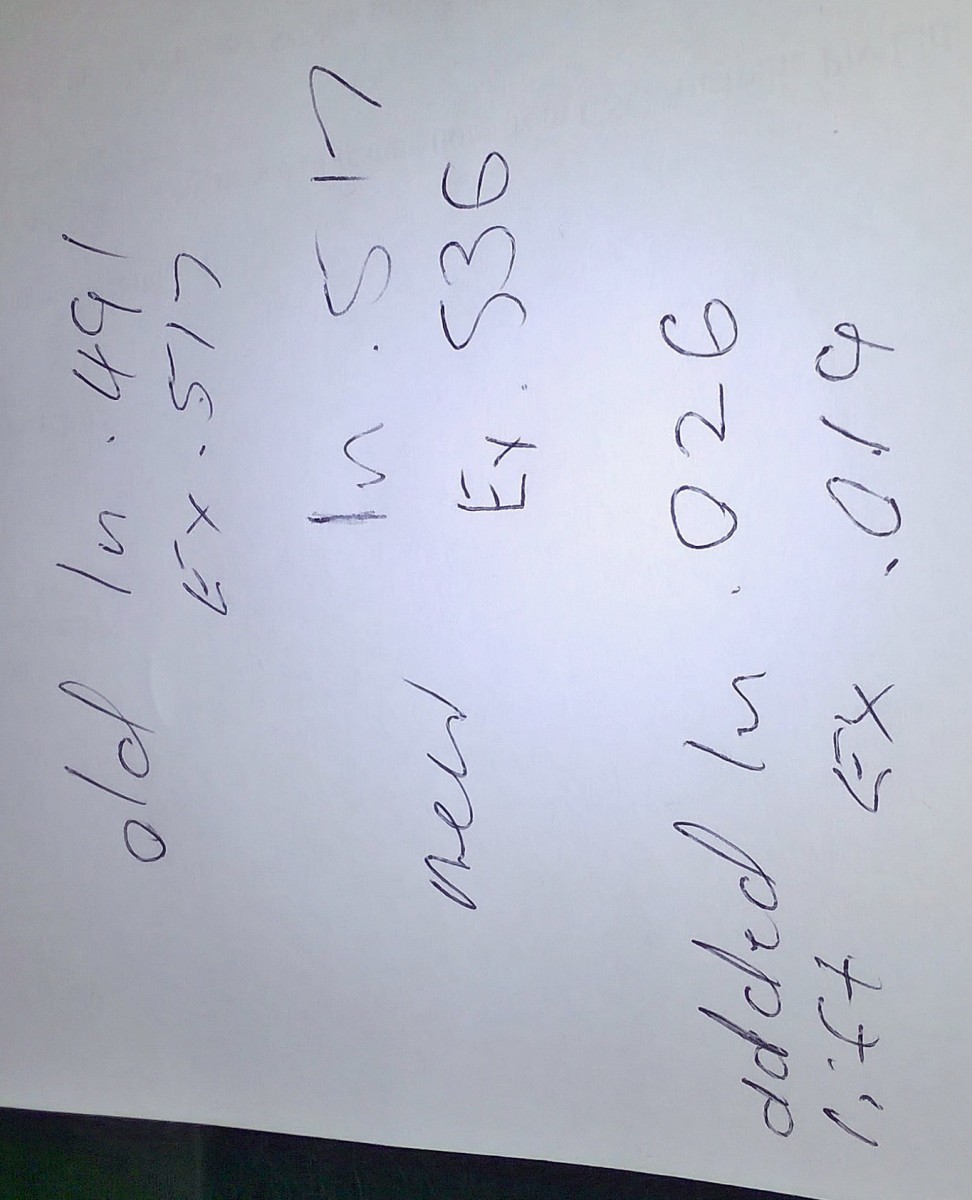 old In .491
Ex .517
new In .517
Ex .536
added In .026
lift Ex .019